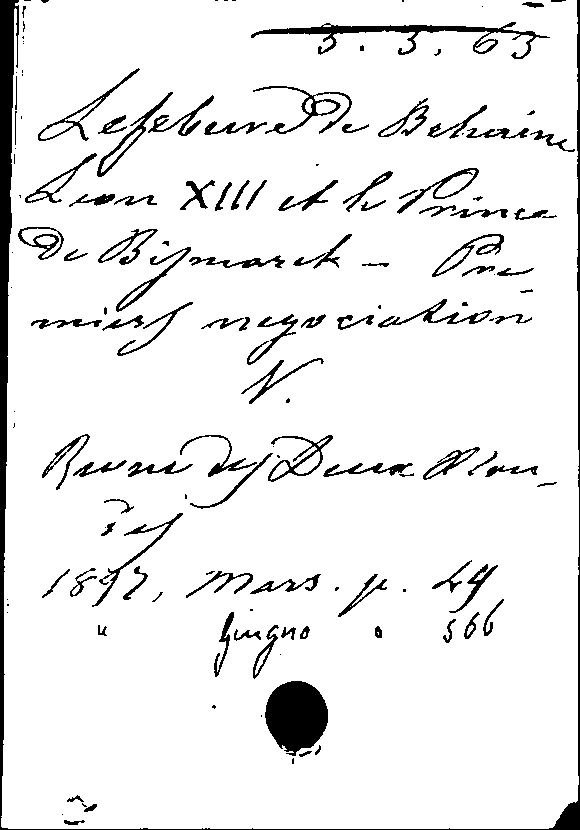 3. 3. 63
Lefebvre de Behaine
Leon XIII et le Prince
de Bismarck – Pre-
miers negociation
V.
Revue des Deux Mon-
des
1897, Mars. p. 49
" Giugno " 566